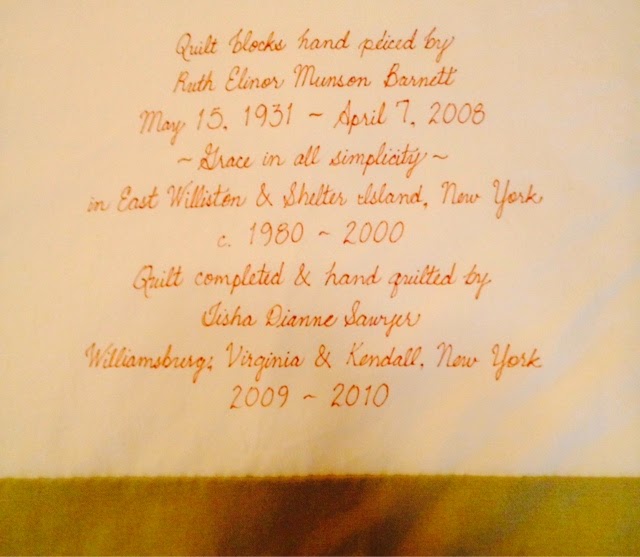 Quilt blocks hand peiced by
Ruth Elinor Munson Barnett
May 15, 1931 ~ April 7, 2008
~ Grace in all simplicity ~
in East Williston & Shelter Island, New York
c. 1980 ~ 2000
Quilt completed & hand quilted by
Tisha Dianne Sawyer
Williamsburg, Virginia & Kendall, New York
2009 ~ 2010